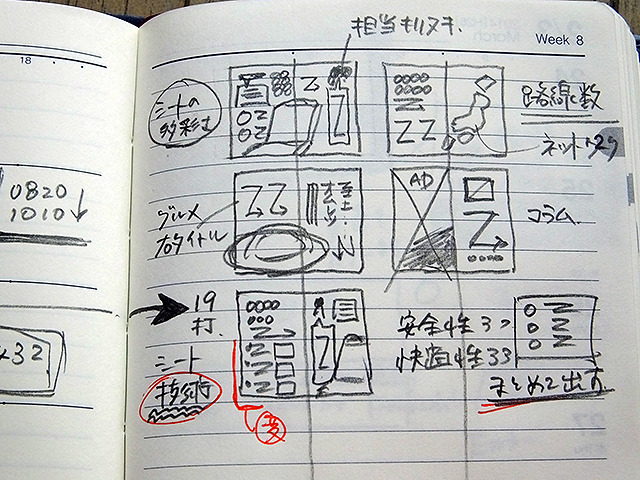 担当キリヌキ.
Week 8
18
シートの
多彩さ
路線数
ネットワーク
0820
1010
グルメ
右タイトル
AD
コラム.
19
打.
シート
技術
変
安全性3つ
快適性33
まとめて出す.